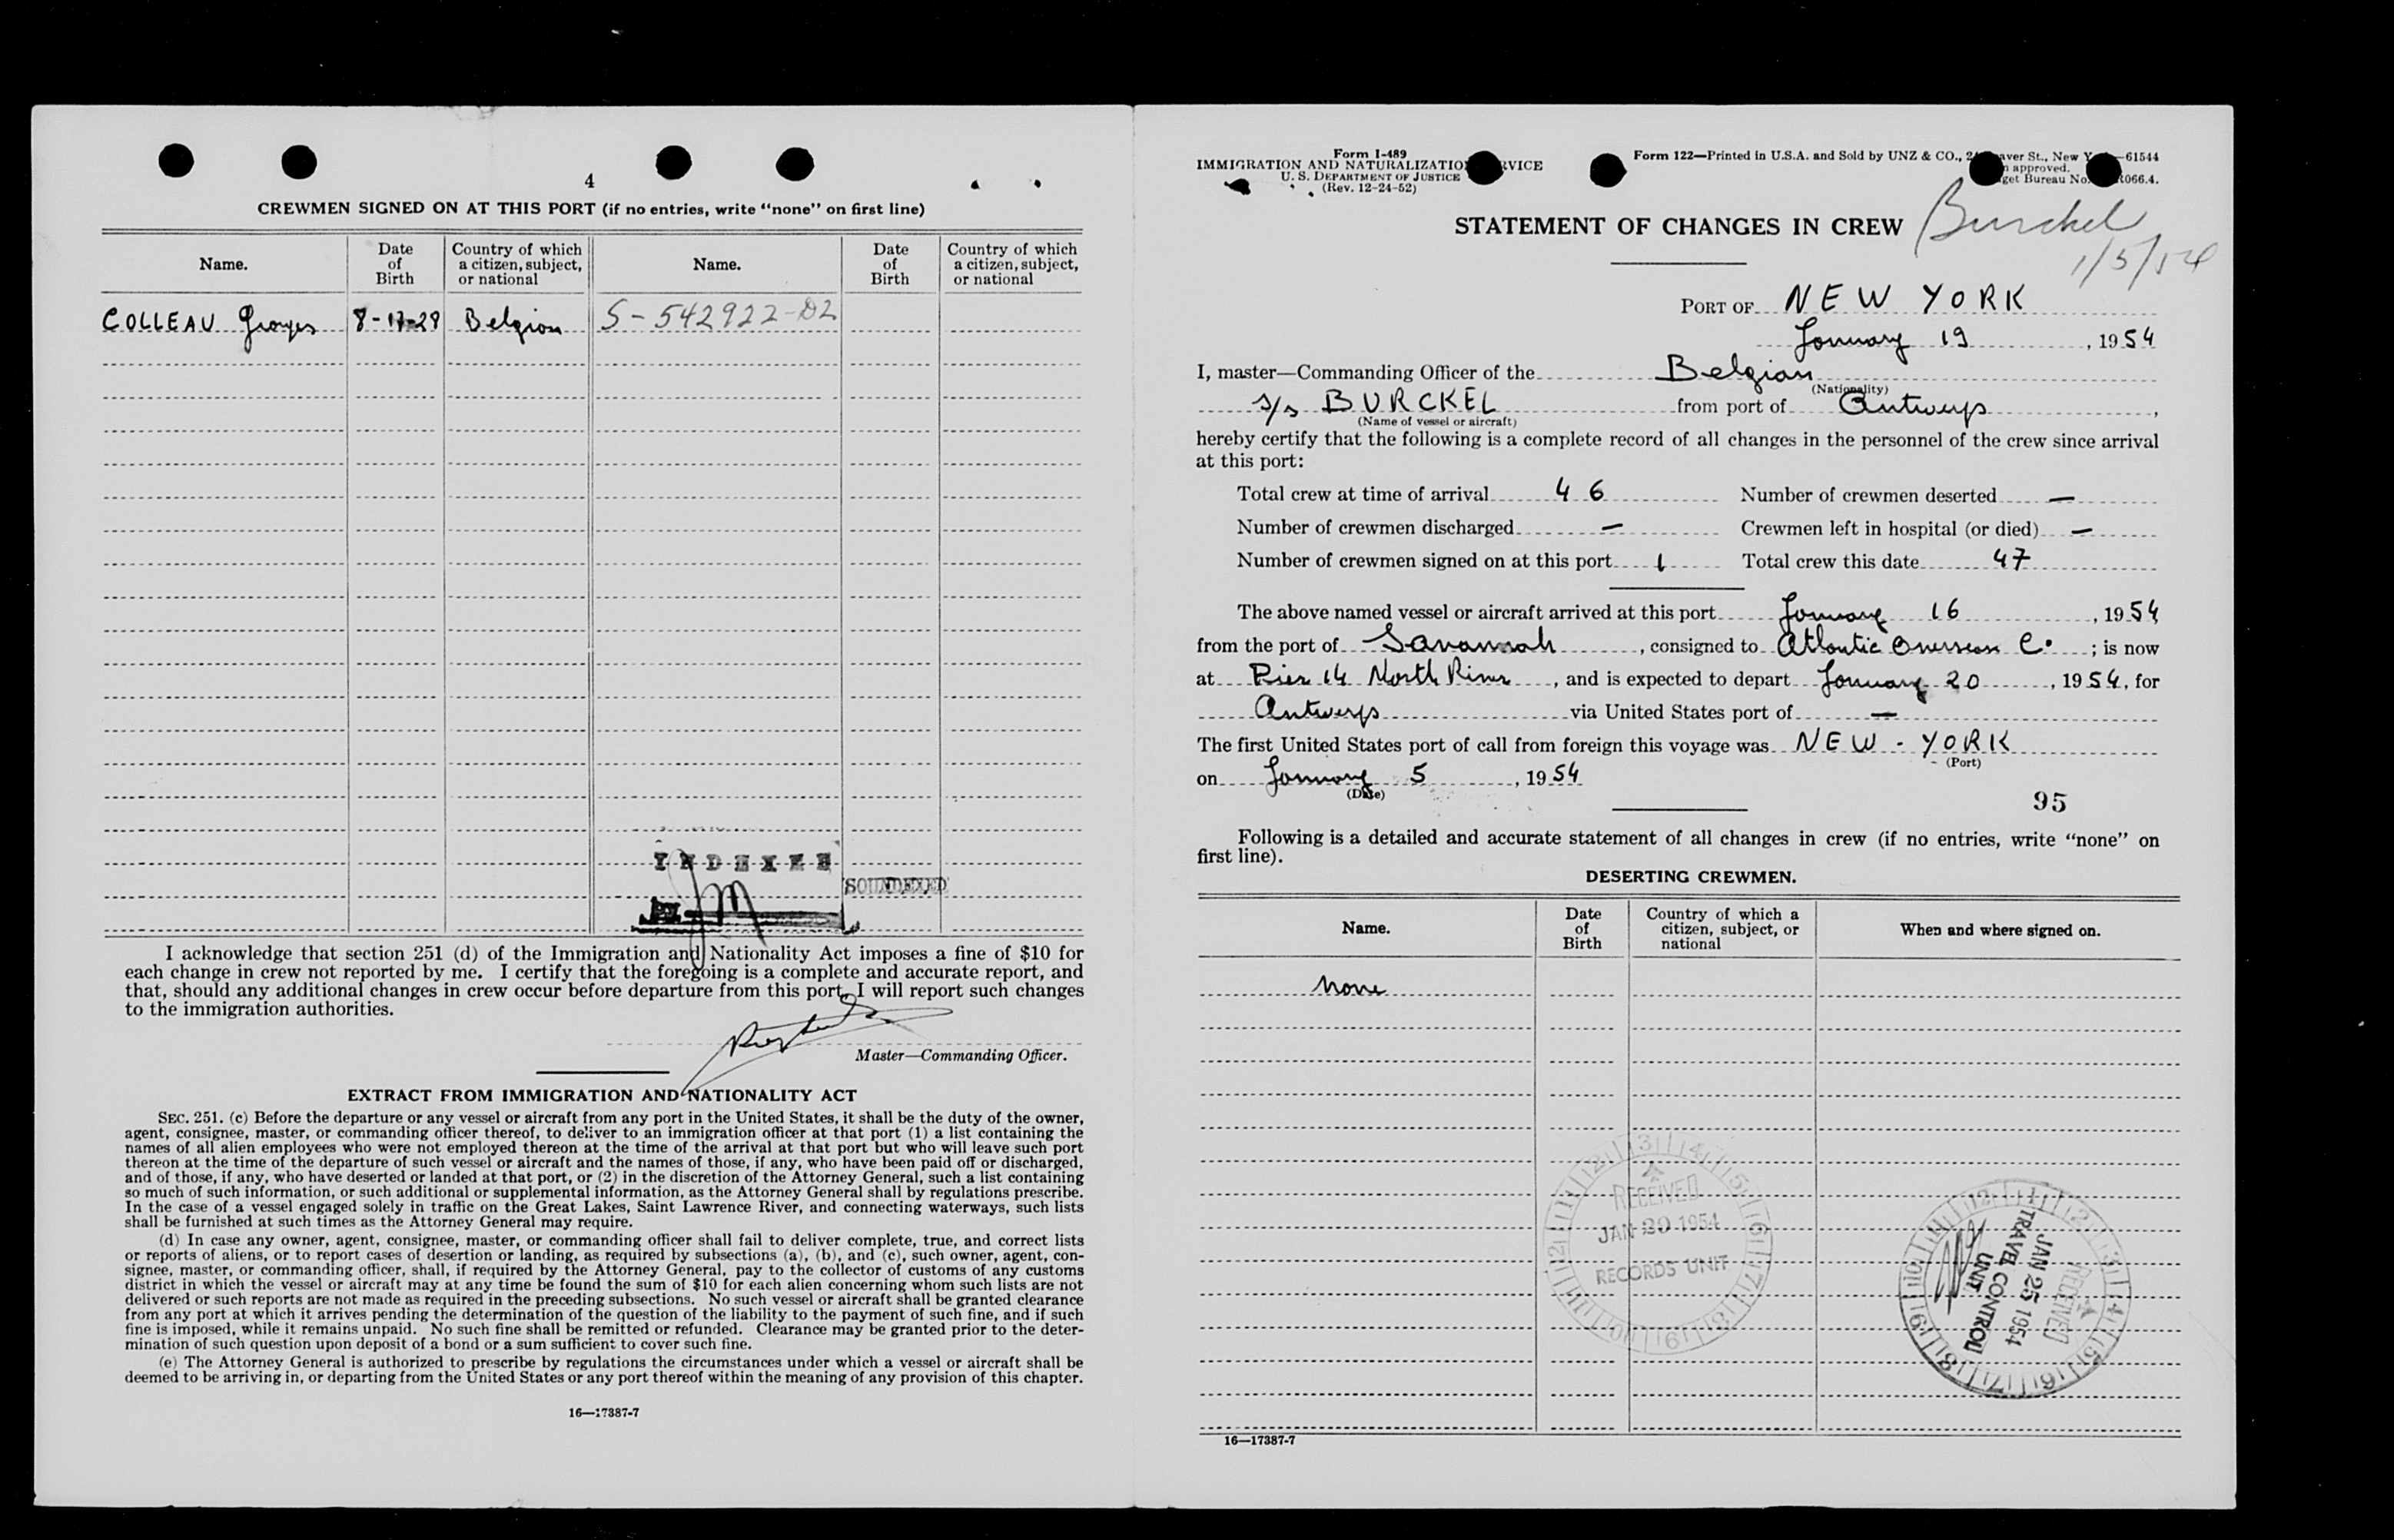 4
CREWMEN SIGNED ON AT THIS PORT (if no entries, write "none" on first line)
Name. Date of Birth Country of which a citizen, subject, or national Name. Date of Birth Country of which a citizen, subject, or national
COLLEAU Georges 8-17-28 Belgian S-542922-D2
INDEXED
SOUNDEXED
I acknowledge that section 251 (d) of the Immigration and Nationality Act imposes a fine of $10 for
each change in crew not reported by me. I certify that the foregoing is a complete and accurate report, and
that, should any additional changes in crew occur before departure from this port, I will report such changes
to the immigration authorities.
Master—Commanding Officer.
EXTRACT FROM IMMIGRATION AND NATIONALITY ACT
SEC. 251. (c) Before the departure or any vessel or aircraft from any port in the United States, it shall be the duty of the owner,
agent, consignee, master, or commanding officer thereof, to deliver to an immigration officer at that port (1) a list containing the
names of all alien employees who were not employed thereon at the time of the arrival at that port but who will leave such port
thereon at the time of the departure of such vessel or aircraft and the names of those, if any, who have been paid off or discharged,
and of those, if any, who have deserted or landed at that port, or (2) in the discretion of the Attorney General, such a list containing
so much of such information, or such additional or supplemental information, as the Attorney General shall by regulations prescribe.
In the case of a vessel engaged solely in traffic on the Great Lakes, Saint Lawrence River, and connecting waterways, such lists
shall be furnished at such times as the Attorney General may require.
(d) In case any owner, agent, consignee, master, or commanding officer shall fail to deliver complete, true, and correct lists
or reports of aliens, or to report cases of desertion or landing, as required by subsections (a), (b), and (c), such owner, agent, con-
signee, master, or commanding officer, shall, if required by the Attorney General, pay to the collector of customs of any customs
district in which the vessel or aircraft may at any time be found the sum of $10 for each alien concerning whom such lists are not
delivered or such reports are not made as required in the preceding subsections. No such vessel or aircraft shall be granted clearance
from any port at which it arrives pending the determination of the question of the liability to the payment of such fine, and if such
fine is imposed, while it remains unpaid. No such fine shall be remitted or refunded. Clearance may be granted prior to the deter-
mination of such question upon deposit of a bond or a sum sufficient to cover such fine.
(e) The Attorney General is authorized to prescribe by regulations the circumstances under which a vessel or aircraft shall be
deemed to be arriving in, or departing from the United States or any port thereof within the meaning of any provision of this chapter.
16—17387-7
Form I-489
IMMIGRATION AND NATURALIZATION SERVICE
U. S. DEPARTMENT OF JUSTICE
(Rev. 12-24-52)
Form 122—Printed in U.S.A. and Sold by UNZ & CO., St., New —61544
approved.
get Bureau No. 066.4.
STATEMENT OF CHANGES IN CREW
Burckel
1/5/54
PORT OF NEW YORK
January 19, 1954
I, master—Commanding Officer of the Belgian
(Nationality)
s/s BURCKEL from port of Antwerp,
(Name of vessel or aircraft)
hereby certify that the following is a complete record of all changes in the personnel of the crew since arrival
at this port:
Total crew at time of arrival 46 Number of crewmen deserted —
Number of crewmen discharged — Crewmen left in hospital (or died) —
Number of crewmen signed on at this port 1 Total crew this date 47
The above named vessel or aircraft arrived at this port January 16, 1954
from the port of Savannah, consigned to Atlantic Overseas C°; is now
at Pier 14 North River, and is expected to depart January 20, 1954, for
Antwerp via United States port of —
The first United States port of call from foreign this voyage was NEW - YORK
(Port)
on January 5, 1954
(Date)
95
Following is a detailed and accurate statement of all changes in crew (if no entries, write "none" on
first line).
DESERTING CREWMEN.
Name. Date of Birth Country of which a citizen, subject, or national When and where signed on.
None
RECEIVED
JAN 20 1954
RECORDS UNIT
RECEIVED
JAN 25 1954
TRAVEL CONTROL
UNIT
16—17387-7